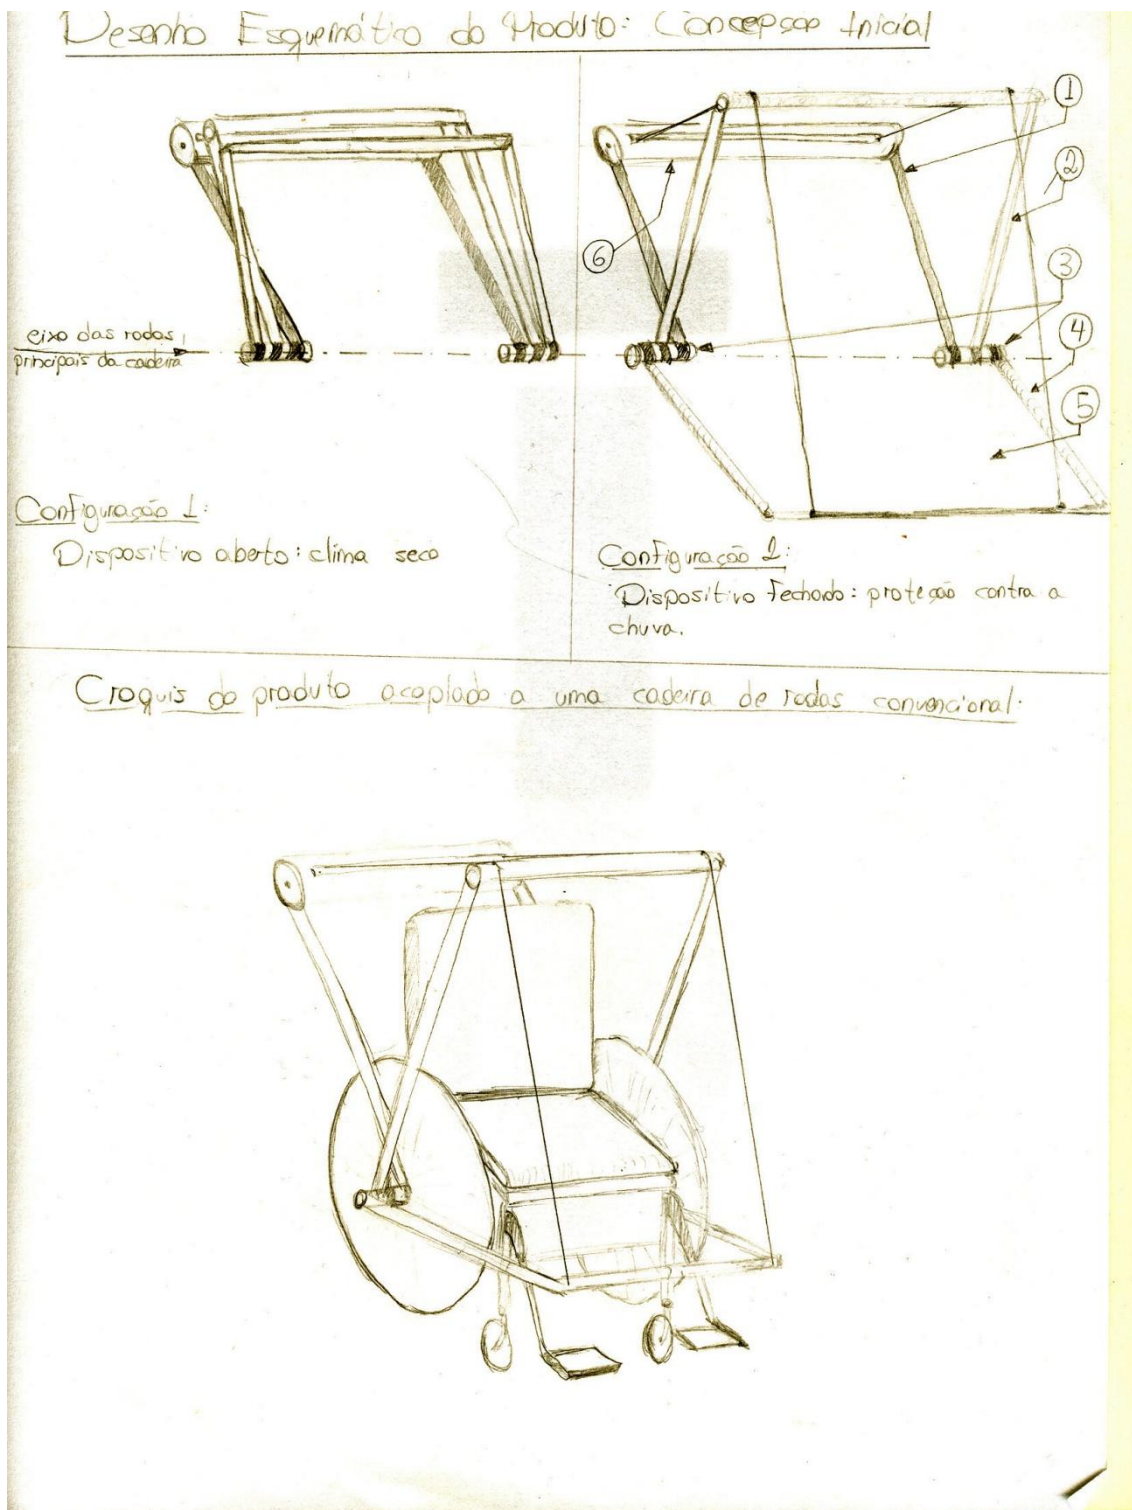 Desenho Esquemático do Produto: Concepção Inicial
1
2
3
4
5
6
eixo das rodas
principais da cadeira
Configuração 1:
Dispositivo aberto: clima seco
Configuração 2:
Dispositivo fechado: proteção contra a
chuva.
Croquis do produto acoplado a uma cadeira de rodas convencional.